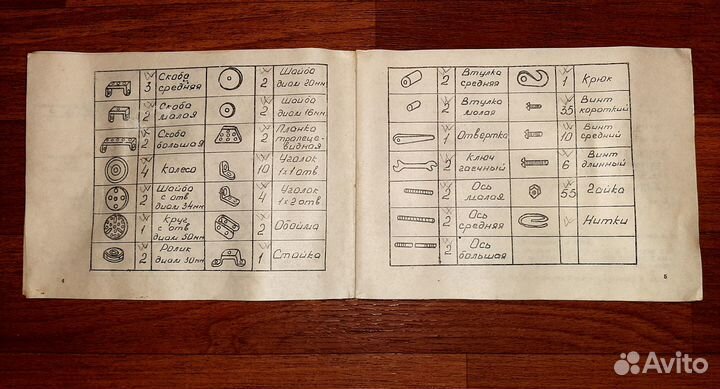 3 Скоба средняя
2 Шайба диам 20мм
2 Скоба малая
2 Шайба диам 16мм
2 Скоба большая
2 Планка трапеце-
видная
4 Колесо
10 Уголок 1х1 отв
2 Шайба с отв диам 34мм
4 Уголок 1х2 отв
1 Круг с отв диам 50мм
2 Обойма
2 Ролик диам 30мм
1 Стойка
4
2 Втулка средняя
1 Крюк
2 Втулка малая
35 Винт короткий
1 Отвертка
10 Винт средний
2 Ключ гаечный
6 Винт длинный
2 Ось малая
55 Гайка
2 Ось средняя
Нитки
2 Ось большая
5
Avito